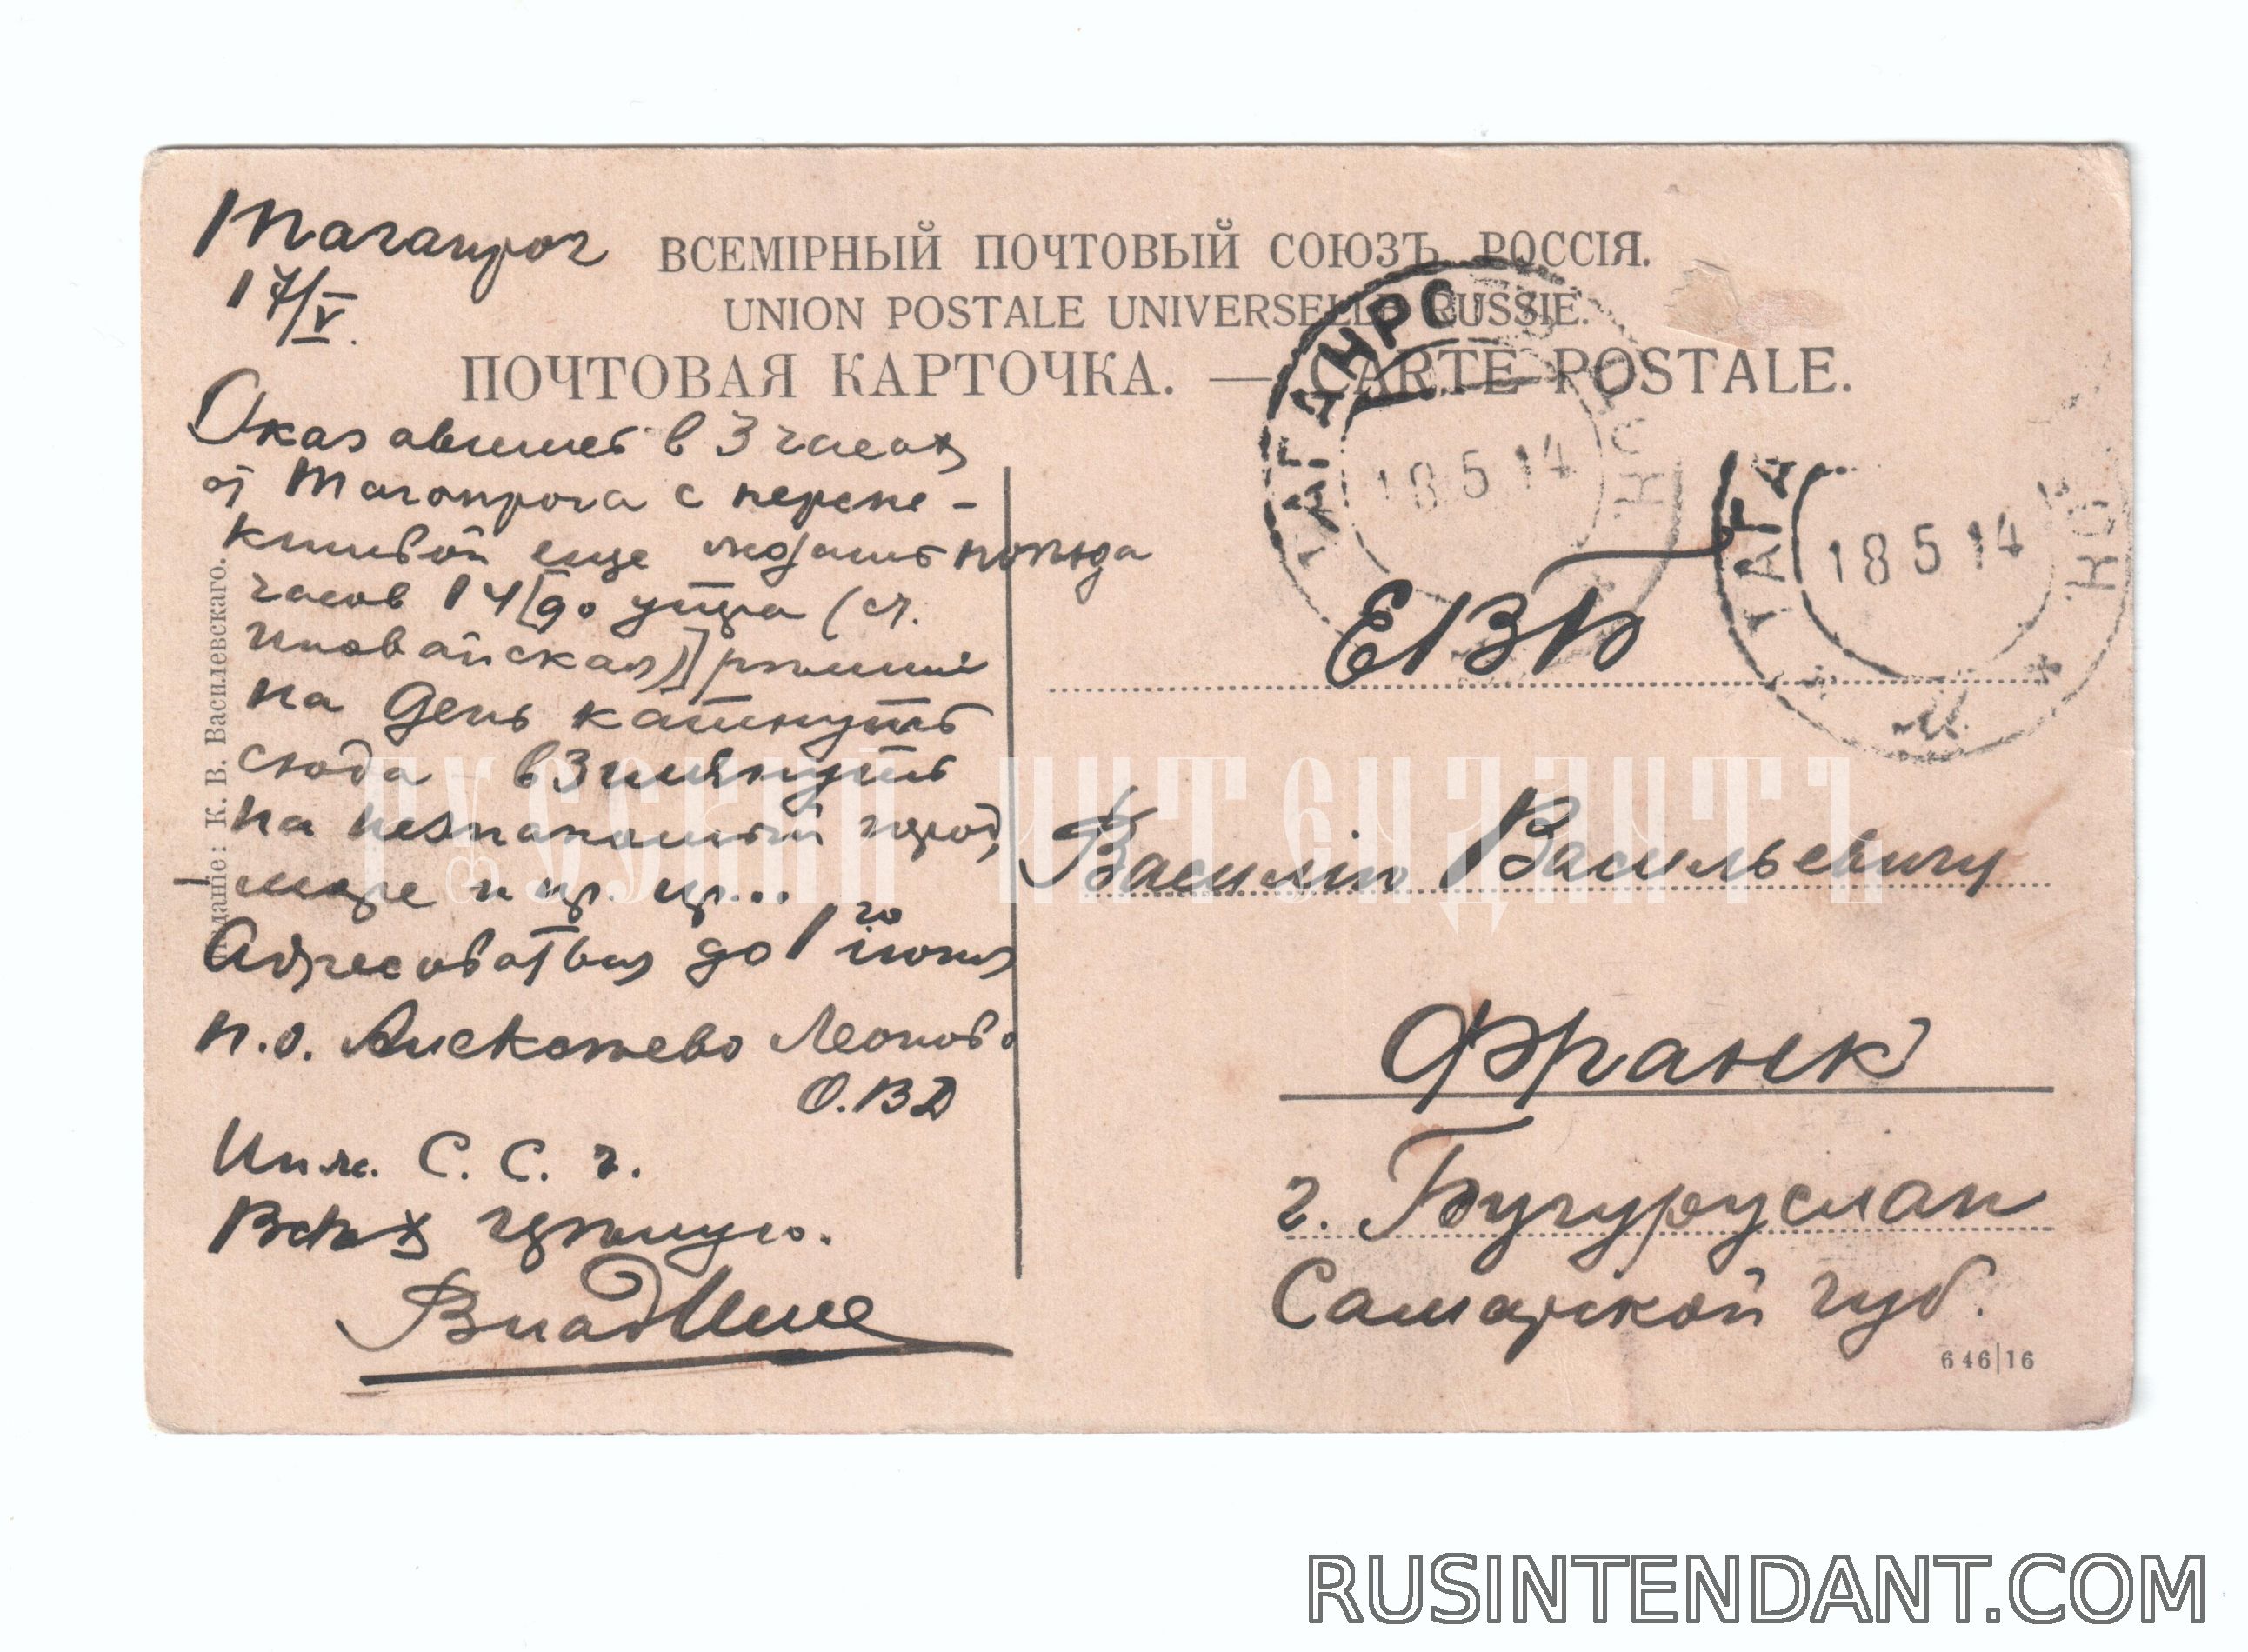 Таганрог
17/V.
ВСЕМІРНЫЙ ПОЧТОВЫЙ СОЮЗЪ. РОССІЯ.
UNION POSTALE UNIVERSELLE. RUSSIE.
ПОЧТОВАЯ КАРТОЧКА. — CARTE POSTALE.
Оказавшись в 3 часах
от Таганрога с перспе-
ктивой еще ждать поѣзда
часов 14 [до утра (ст.
Иловайская)] рѣшил
на день катнуть
сюда взглянуть
на незнакомый город,
– море и пр. пр...
Адресоваться до 1го іюня
п.о. Леоново
О.ВД
Инж. С. С. г.
Всѣх цѣлую.
Влад
Изданіе: К. В. Василевскаго.
ТАГАНРОГ
18 5 14
ТАГА
18 5 14
ЕВБ
Василію Васильевичу
Франк
г. Бугуруслан
Самарской губ.
646|16
РУССКІЙ ИНТЕНДАНТЪ
RUSINTENDANT.COM